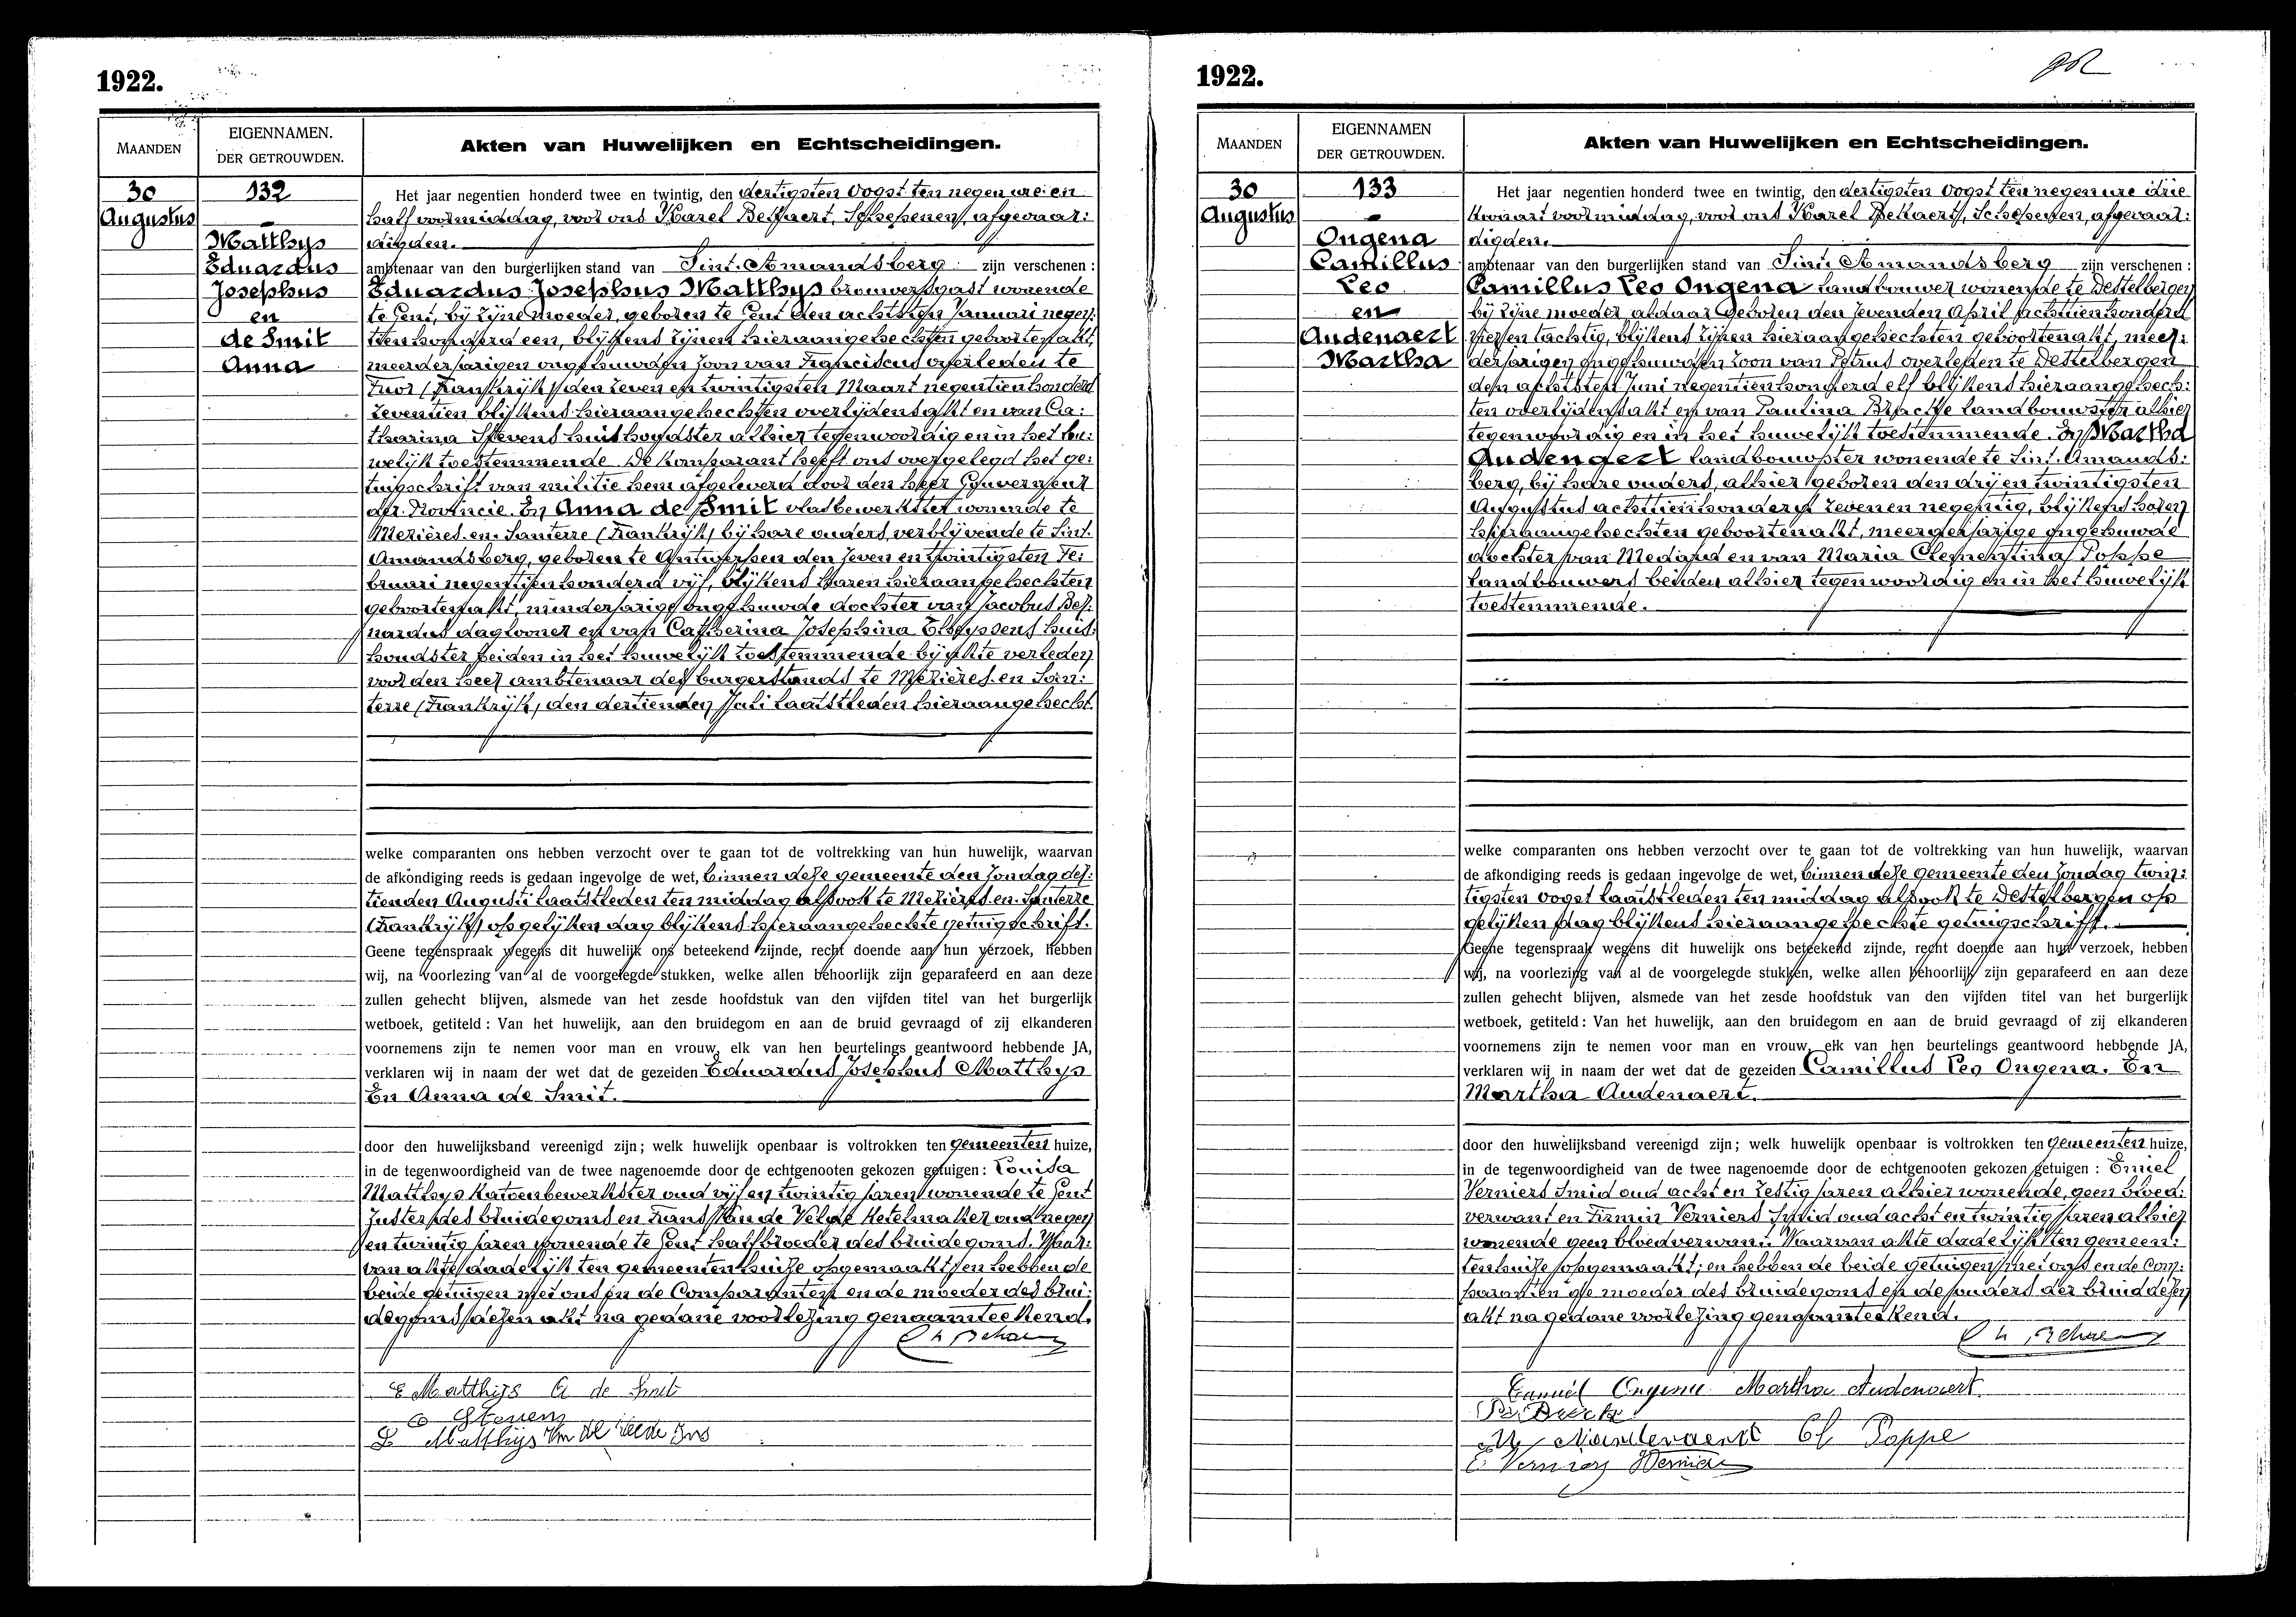 1922.
MAANDEN
EIGENNAMEN.
DER GETROUWDEN.
Akten van Huwelijken en Echtscheidingen.
30
Augustus
132
Matthys
Eduardus
Josephus
en
de Smit
Anna
Het jaar negentien honderd twee en twintig, den dertigsten Oogst ten negen ure en
half voormiddag, voor ons Karel Bekaert, Schepenen, afgevaar:
digden.
ambtenaar van den burgerlijken stand van Sint-Amandsberg zijn verschenen :
Eduardus Josephus Matthys brouwersgast wonende
te Gent, bij zijne moeder, geboren te Gent den achtsten Januari negen:
tien honderd een, blijkens zijnen hieraangehechten geboortenakt,
meerderjarigen ongehuwden zoon van Franciscus overleden te
(Frankrijk) den zeven en twintigsten Maart negentien honderd
zeventien blijkens hieraangehechten overlijdensakt en van Ca:
tharina Stevens huishoudster alhier tegenwoordig en in het hu:
welijk toestemmende. De komparant heeft ons overgelegd het ge:
tuigschrift van militie hem afgeleverd door den heer Gouverneur
der Provincie. En Anna de Smit vlasbewerkster wonende te
Mezières-en-Santerre (Frankrijk) bij hare ouders verblijvende te Sint-
Amandsberg, geboren te Antwerpen den zeven en twintigsten Fe:
bruari negentien honderd vijf, blijkens haren hieraangehechten
geboortenakt, minderjarige ongehuwde dochter van Jacobus Ber:
nardus daglooner en van Catherina Josephina huis:
houdster beiden in het huwelijk toestemmende bij akte verleden
voor den heer ambtenaar des burgerstands te Mezières-en-San:
terre (Frankrijk), den dertienden Juli laatstleden hieraangehecht.
welke comparanten ons hebben verzocht over te gaan tot de voltrekking van hun huwelijk, waarvan
de afkondiging reeds is gedaan ingevolge de wet, binnen deze gemeente den Zondag der:
tienden Augusti laatstleden ten middag alsook te Mezières-en-Santerre
(Frankrijk) op gelijken dag blijkens hieraangehechte getuigschrift.
Geene tegenspraak wegens dit huwelijk ons beteekend zijnde, recht doende aan hun verzoek, hebben
wij, na voorlezing van al de voorgelegde stukken, welke allen behoorlijk zijn geparafeerd en aan deze
zullen gehecht blijven, alsmede van het zesde hoofdstuk van den vijfden titel van het burgerlijk
wetboek, getiteld : Van het huwelijk, aan den bruidegom en aan de bruid gevraagd of zij elkanderen
voornemens zijn te nemen voor man en vrouw, elk van hen beurtelings geantwoord hebbende JA,
verklaren wij in naam der wet dat de gezeiden Eduardus Josephus Matthys
En Anna de Smit.
door den huwelijksband vereenigd zijn ; welk huwelijk openbaar is voltrokken ten gemeenten huize,
in de tegenwoordigheid van de twee nagenoemde door de echtgenooten gekozen getuigen : Louisa
Matthys katoenbewerkster oud vijf en twintig jaren wonende te Gent
zuster des bruidegoms en Frans Van de Velde ketelmaker oud negen
en twintig jaren wonende te Gent halfbroeder des bruidegoms. Waar:
van akte dadelijk ten gemeentenhuize opgemaakt; en hebben de
beide getuigen met ons en de Comparanten en de moeder des brui:
degoms dezen akt na gedane voorlezing genaamteekend.
E Matthijs A de Smit
C Stevens
L Matthijs
1922.
MAANDEN
EIGENNAMEN
DER GETROUWDEN.
Akten van Huwelijken en Echtscheidingen.
30
Augustus
133
Ongena
Camillus
Leo
en
Audenaert
Martha
Het jaar negentien honderd twee en twintig, den dertigsten Oogst ten negen ure drie
kwaart voormiddag, voor ons Karel Bekaert, Schepenen, afgevaar:
digden.
ambtenaar van den burgerlijken stand van Sint Amandsberg zijn verschenen :
Camillus Leo Ongena landbouwer wonende te Destelbergen
bij zijne moeder, aldaar geboren den zevenden April achttien honderd
vier en tachtig, blijkens zijnen hieraangehechten geboortenakt, meer:
derjarigen ongehuwden zoon van Petrus overleden te Destelbergen
den achtsten Juni negentien honderd elf blijkens hieraangehech:
ten overlijdensakt en van Paulina landbouwster alhier
tegenwoordig en in het huwelijk toestemmende. En Martha
Audenaert landbouwster wonende te Sint-Amands:
berg, bij hare ouders, alhier geboren den drij en twintigsten
Augustus achttien honderd zeven en negentig, blijkens haren
hieraangehechten geboortenakt, meerderjarige ongehuwde
dochter van Medard en van Maria Clementina Poppe
landbouwers beiden alhier tegenwoordig en in het huwelijk
toestemmende.
welke comparanten ons hebben verzocht over te gaan tot de voltrekking van hun huwelijk, waarvan
de afkondiging reeds is gedaan ingevolge de wet, binnen deze gemeente den Zondag twin:
tigsten oogst laatstleden ten middag alsook te Destelbergen op
gelijken dag blijkens hieraangehechte getuigschrift.
Geene tegenspraak wegens dit huwelijk ons beteekend zijnde, recht doende aan hun verzoek, hebben
wij, na voorlezing van al de voorgelegde stukken, welke allen behoorlijk zijn geparafeerd en aan deze
zullen gehecht blijven, alsmede van het zesde hoofdstuk van den vijfden titel van het burgerlijk
wetboek, getiteld : Van het huwelijk, aan den bruidegom en aan de bruid gevraagd of zij elkanderen
voornemens zijn te nemen voor man en vrouw, elk van hen beurtelings geantwoord hebbende JA,
verklaren wij in naam der wet dat de gezeiden Camillus Leo Ongena. En
Martha Audenaert.
door den huwelijksband vereenigd zijn ; welk huwelijk openbaar is voltrokken ten gemeenten huize,
in de tegenwoordigheid van de twee nagenoemde door de echtgenooten gekozen getuigen : Emiel
Verniers Smid oud acht en zestig jaren alhier wonende, geen bloed:
verwant en Firmin Verniers Smid oud acht en twintig jaren alhier
wonende geen bloedverwant. Waarvan akte dadelijk ten gemeen:
tenhuize opgemaakt; en hebben de beide getuigen met ons en de Com:
paranten de moeder des bruidegoms en de ouders der bruid dezen
akt na gedane voorlezing genaamteekend.
Ongena Martha Audenaert
Cl Poppe
E Verniers